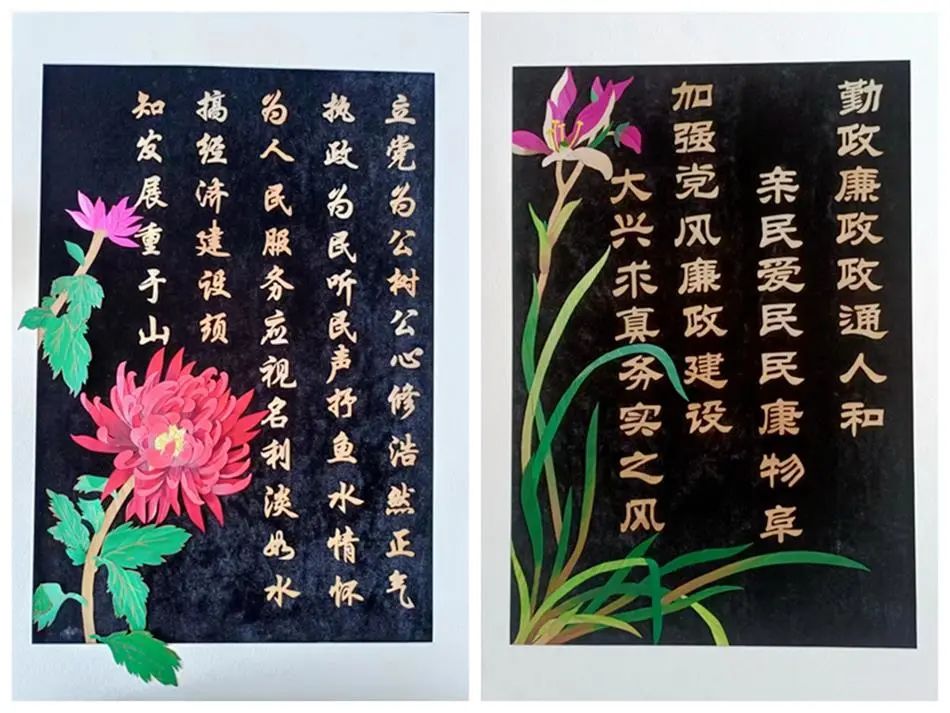 立党为公树公心修浩然正气
执政为民听民声抒鱼水情怀
为人民服务应视名利淡如水
搞经济建设须
知发展重于山
勤政廉政政通人和
亲民爱民民康物阜
加强党风廉政建设
大兴求真务实之风